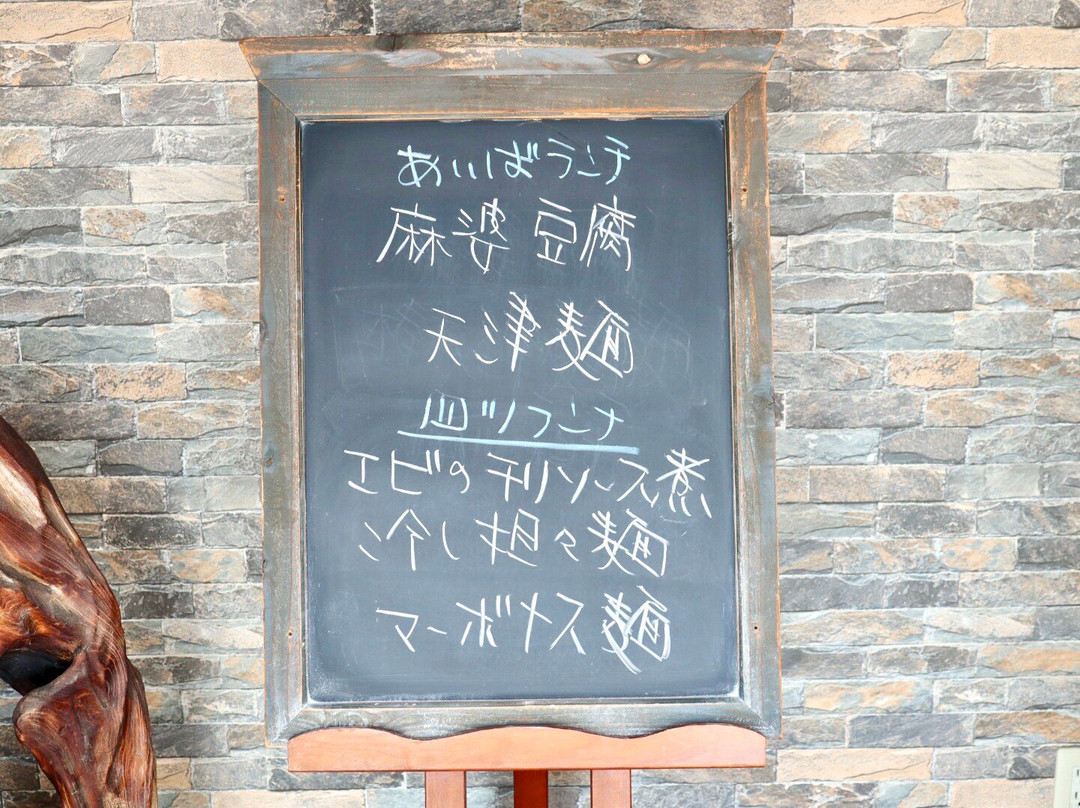 あいばランチ
麻婆豆腐
天津麺
エビのチリソース煮
冷し担々麺
マーボナス麺